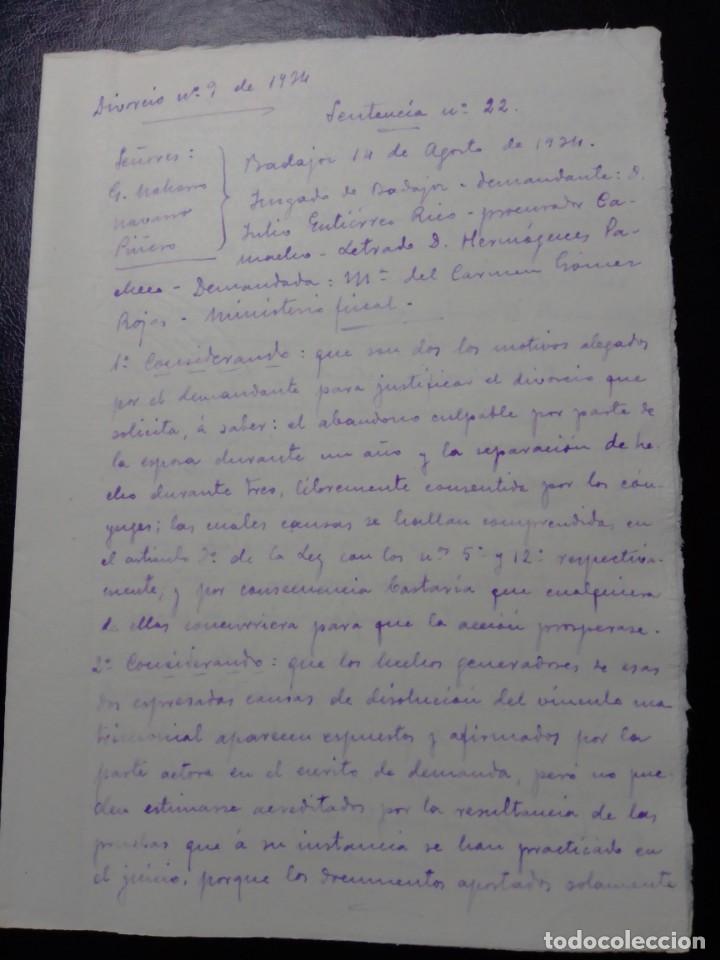 Divorcio nº 9 de 1934
Sentencia nº 22.
Señores:
G. Naharro
Navarro
Piñero
Badajoz 14 de Agosto de 1934.
Juzgado de Badajoz - demandante: D.
Julio Gutiérrez Rico - procurador Ca-
macho - Letrado D. Hermógenes Pa-
checo - Demandada: Mª del Carmen Gómez
Rojas - Ministerio fiscal -
1º Considerando: que son dos los motivos alegados
por el demandante para justificar el divorcio que
solicita, á saber: el abandono culpable por parte de
la esposa durante un año y la separación de he-
cho durante tres, libremente consentida por los cón-
yuges; las cuales causas se hallan comprendidas en
el artículo 3º de la Ley con los nos 5º y 12º respectiva-
mente, y por consecuencia bastaría que cualquiera
de ellas concurriera para que la acción prosperase.
2º Considerando: que los hechos generadores de esas
dos expresadas causas de disolución del vínculo ma
trimonial aparecen expuestos y afirmados por la
parte actora en el escrito de demanda, pero no pue-
den estimarse acreditados por la resultancia de las
pruebas que á su instancia se han practicado en
el juicio, porque los documentos aportados solamente
todocoleccion.net